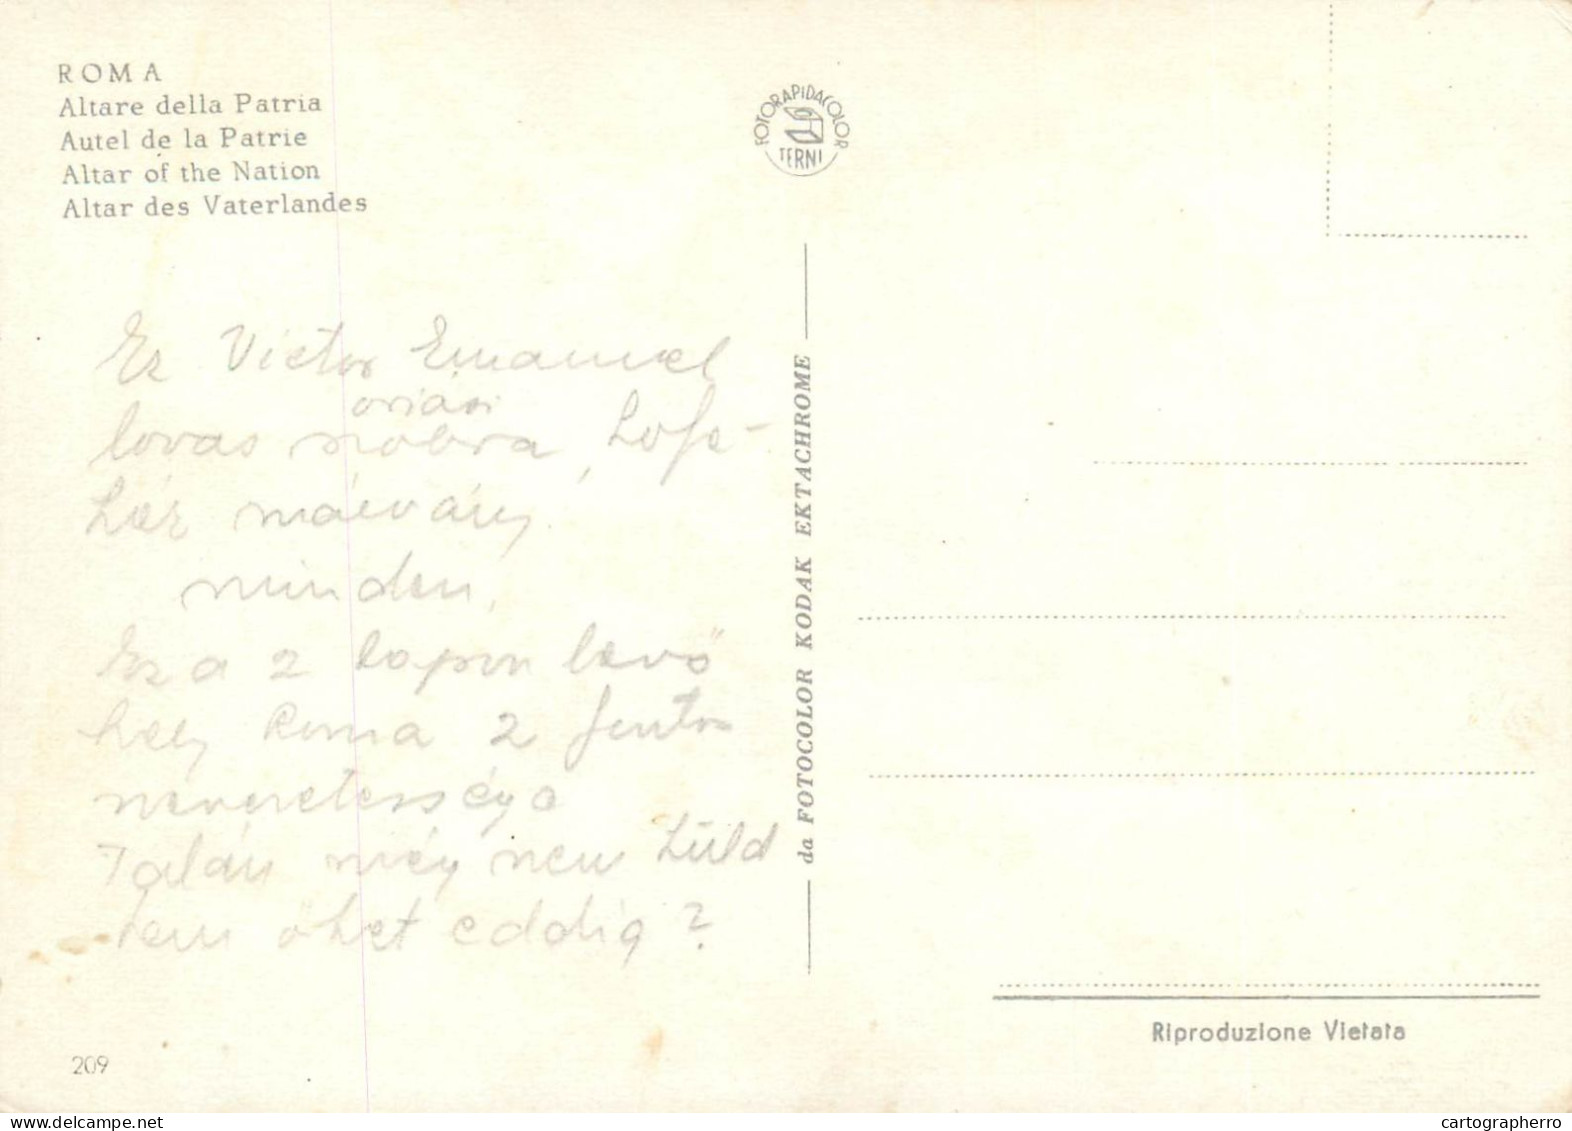 ROMA
Altare della Patria
Autel de la Patrie
Altar of the Nation
Altar des Vaterlandes
FOTORAPIDACOLOR
TERNI
Ez Victor Emanuel
óriási
lovas szobra, hófe-
hér márvány
minden.
Ez a 2 lapon levő
hely Roma 2 fontos
nevezetessége
Talán még nem küld
tem őket eddig?
da FOTOCOLOR KODAK EKTACHROME
Riproduzione Vietata
209
www.delcampe.net
cartographerro